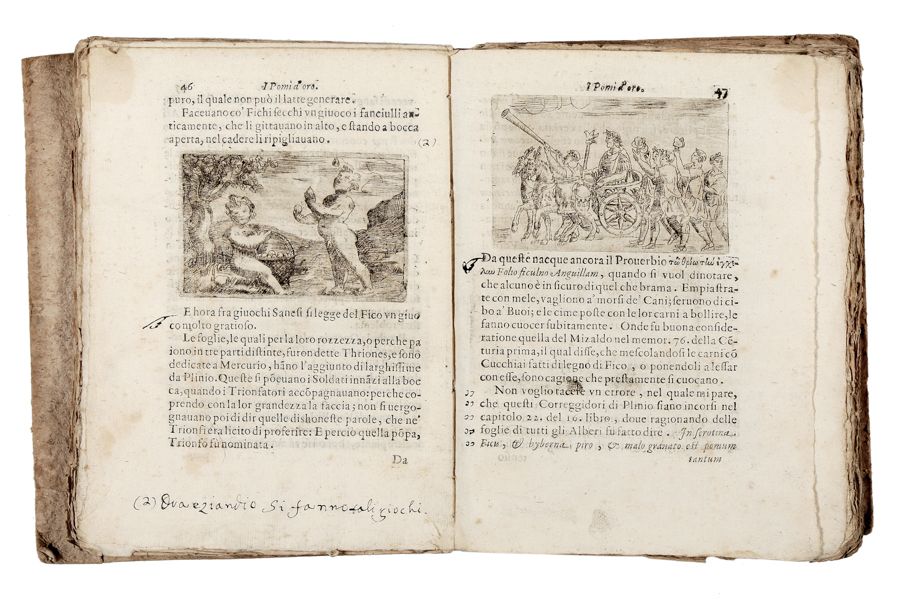 46 I Pomi d'oro.
puro, il quale non può il latte generare.
Faceuano co' Fichi secchi vn giuoco i fanciulli an-
ticamente, che li gittauano in alto, e stando a bocca
aperta, nel cadere li ripigliauano. (2)
E hora fra giuochi Sanesi si legge del Fico vn giuo
co molto gratioso.
Le foglie, le quali per la loro rozzezza, o perche pa
iono in tre parti distinte, furon dette Thriones, e sono
dedicate a Mercurio, hãno l'aggiunto di larghissime
da Plinio. Queste si põeuano i Soldati innãzi alla boc
ca, quando i Trionfatori accõpagnauano: perche co-
prendo con la lor grandezza la faccia; non si uergo-
gnauano poi di dir quelle dishoneste parole, che ne'
Trionfi era licito di proferire: E perciò quella põpa,
Trionfo fu nominata.
Da
(2) Ora eziandio si fanno tali giochi.
I Pomi d'oro. 47
Da queste nacque ancora il Prouerbio
Folio ficulno Anguillam, quando si vuol dinotare,
che alcuno è in sicuro di quel che brama. Empiastra-
te con mele, vagliono a' morsi de' Cani; seruono di ci-
bo a' Buoi; e le cime poste con le lor carni a bollire, le
fanno cuocer subitamente. Onde fu buona conside-
ratione quella del Mizaldo nel memor. 76. della Cẽ-
turia prima, il qual disse, che mescolandosi le carni cõ
Cucchiai fatti di legno di Fico, o ponendoli a lessar
con esse, sono cagione che prestamente si cuocano.
Non voglio tacere vn errore, nel quale mi pare,
che questi Correggidori di Plinio siano incorsi nel
capitolo 22. del 16. libro, doue ragionando delle
foglie di tutti gli Alberi fu fatto dire. In serotina
Ficu, & hyberna piro, & malo granato est pomum
tantum